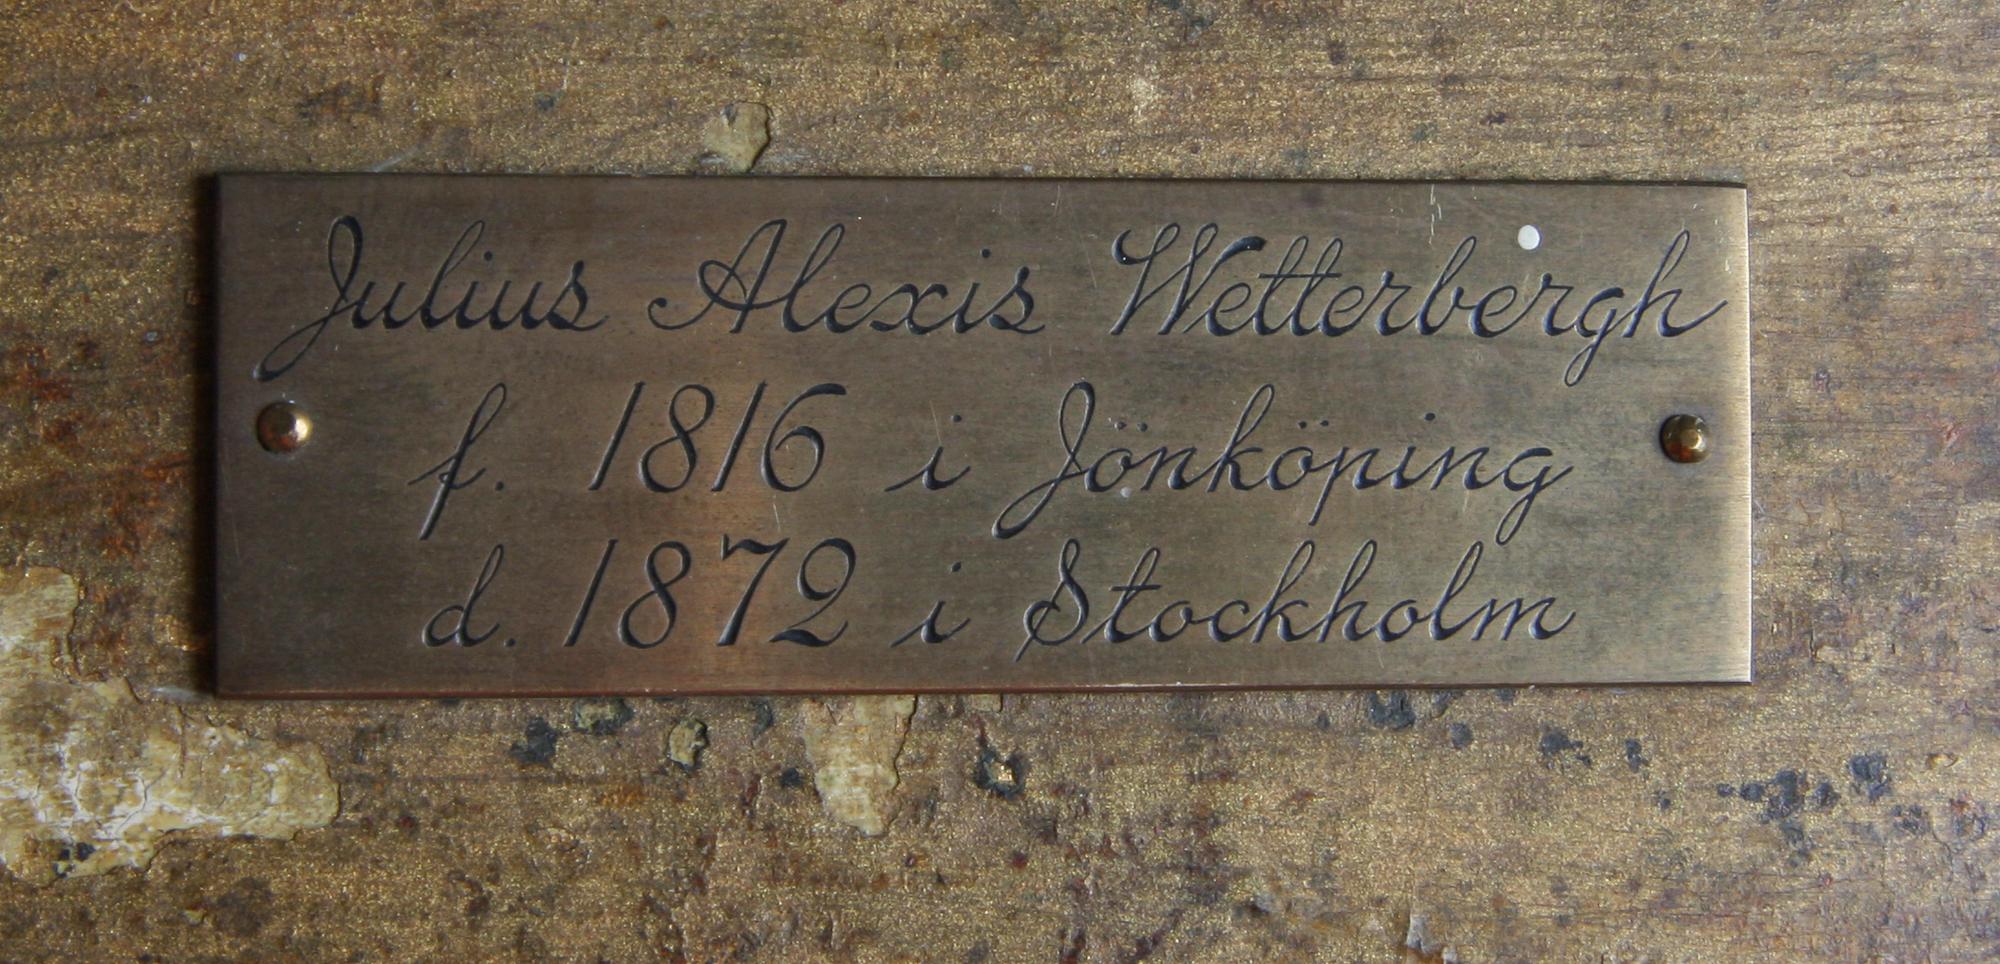 Julius Alexis Wetterbergh
f. 1816 i Jönköping
d. 1872 i Stockholm